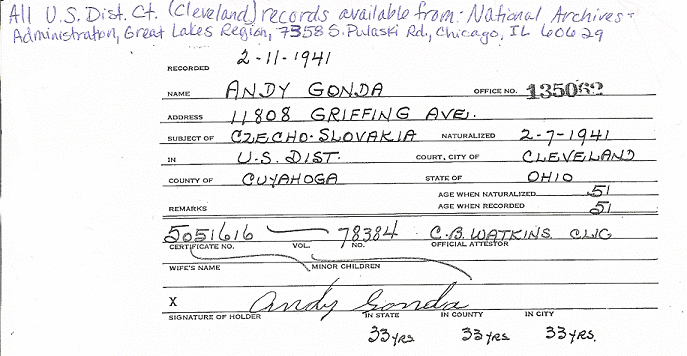 All U.S. Dist. Ct. (Cleveland) records available from: National Archives +
Administration, Great Lakes Region, 7358 S. Pulaski Rd, Chicago, IL 60629
RECORDED 2-11-1941
NAME ANDY GONDA OFFICE NO. 135062
ADDRESS 11808 GRIFFING AVE.
SUBJECT OF CZECHO-SLOVAKIA NATURALIZED 2-7-1941
IN U.S. DIST. COURT, CITY OF CLEVELAND
COUNTY OF CUYAHOGA STATE OF OHIO
AGE WHEN NATURALIZED 51
REMARKS AGE WHEN RECORDED 51
5051616 78384 C.B. WATKINS CLIG
CERTIFICATE NO. VOL. NO. OFFICIAL ATTESTOR
WIFE'S NAME MINOR CHILDREN
X Andy Gonda
SIGNATURE OF HOLDER IN STATE IN COUNTY IN CITY
33 yrs 33 yrs. 33 yrs.